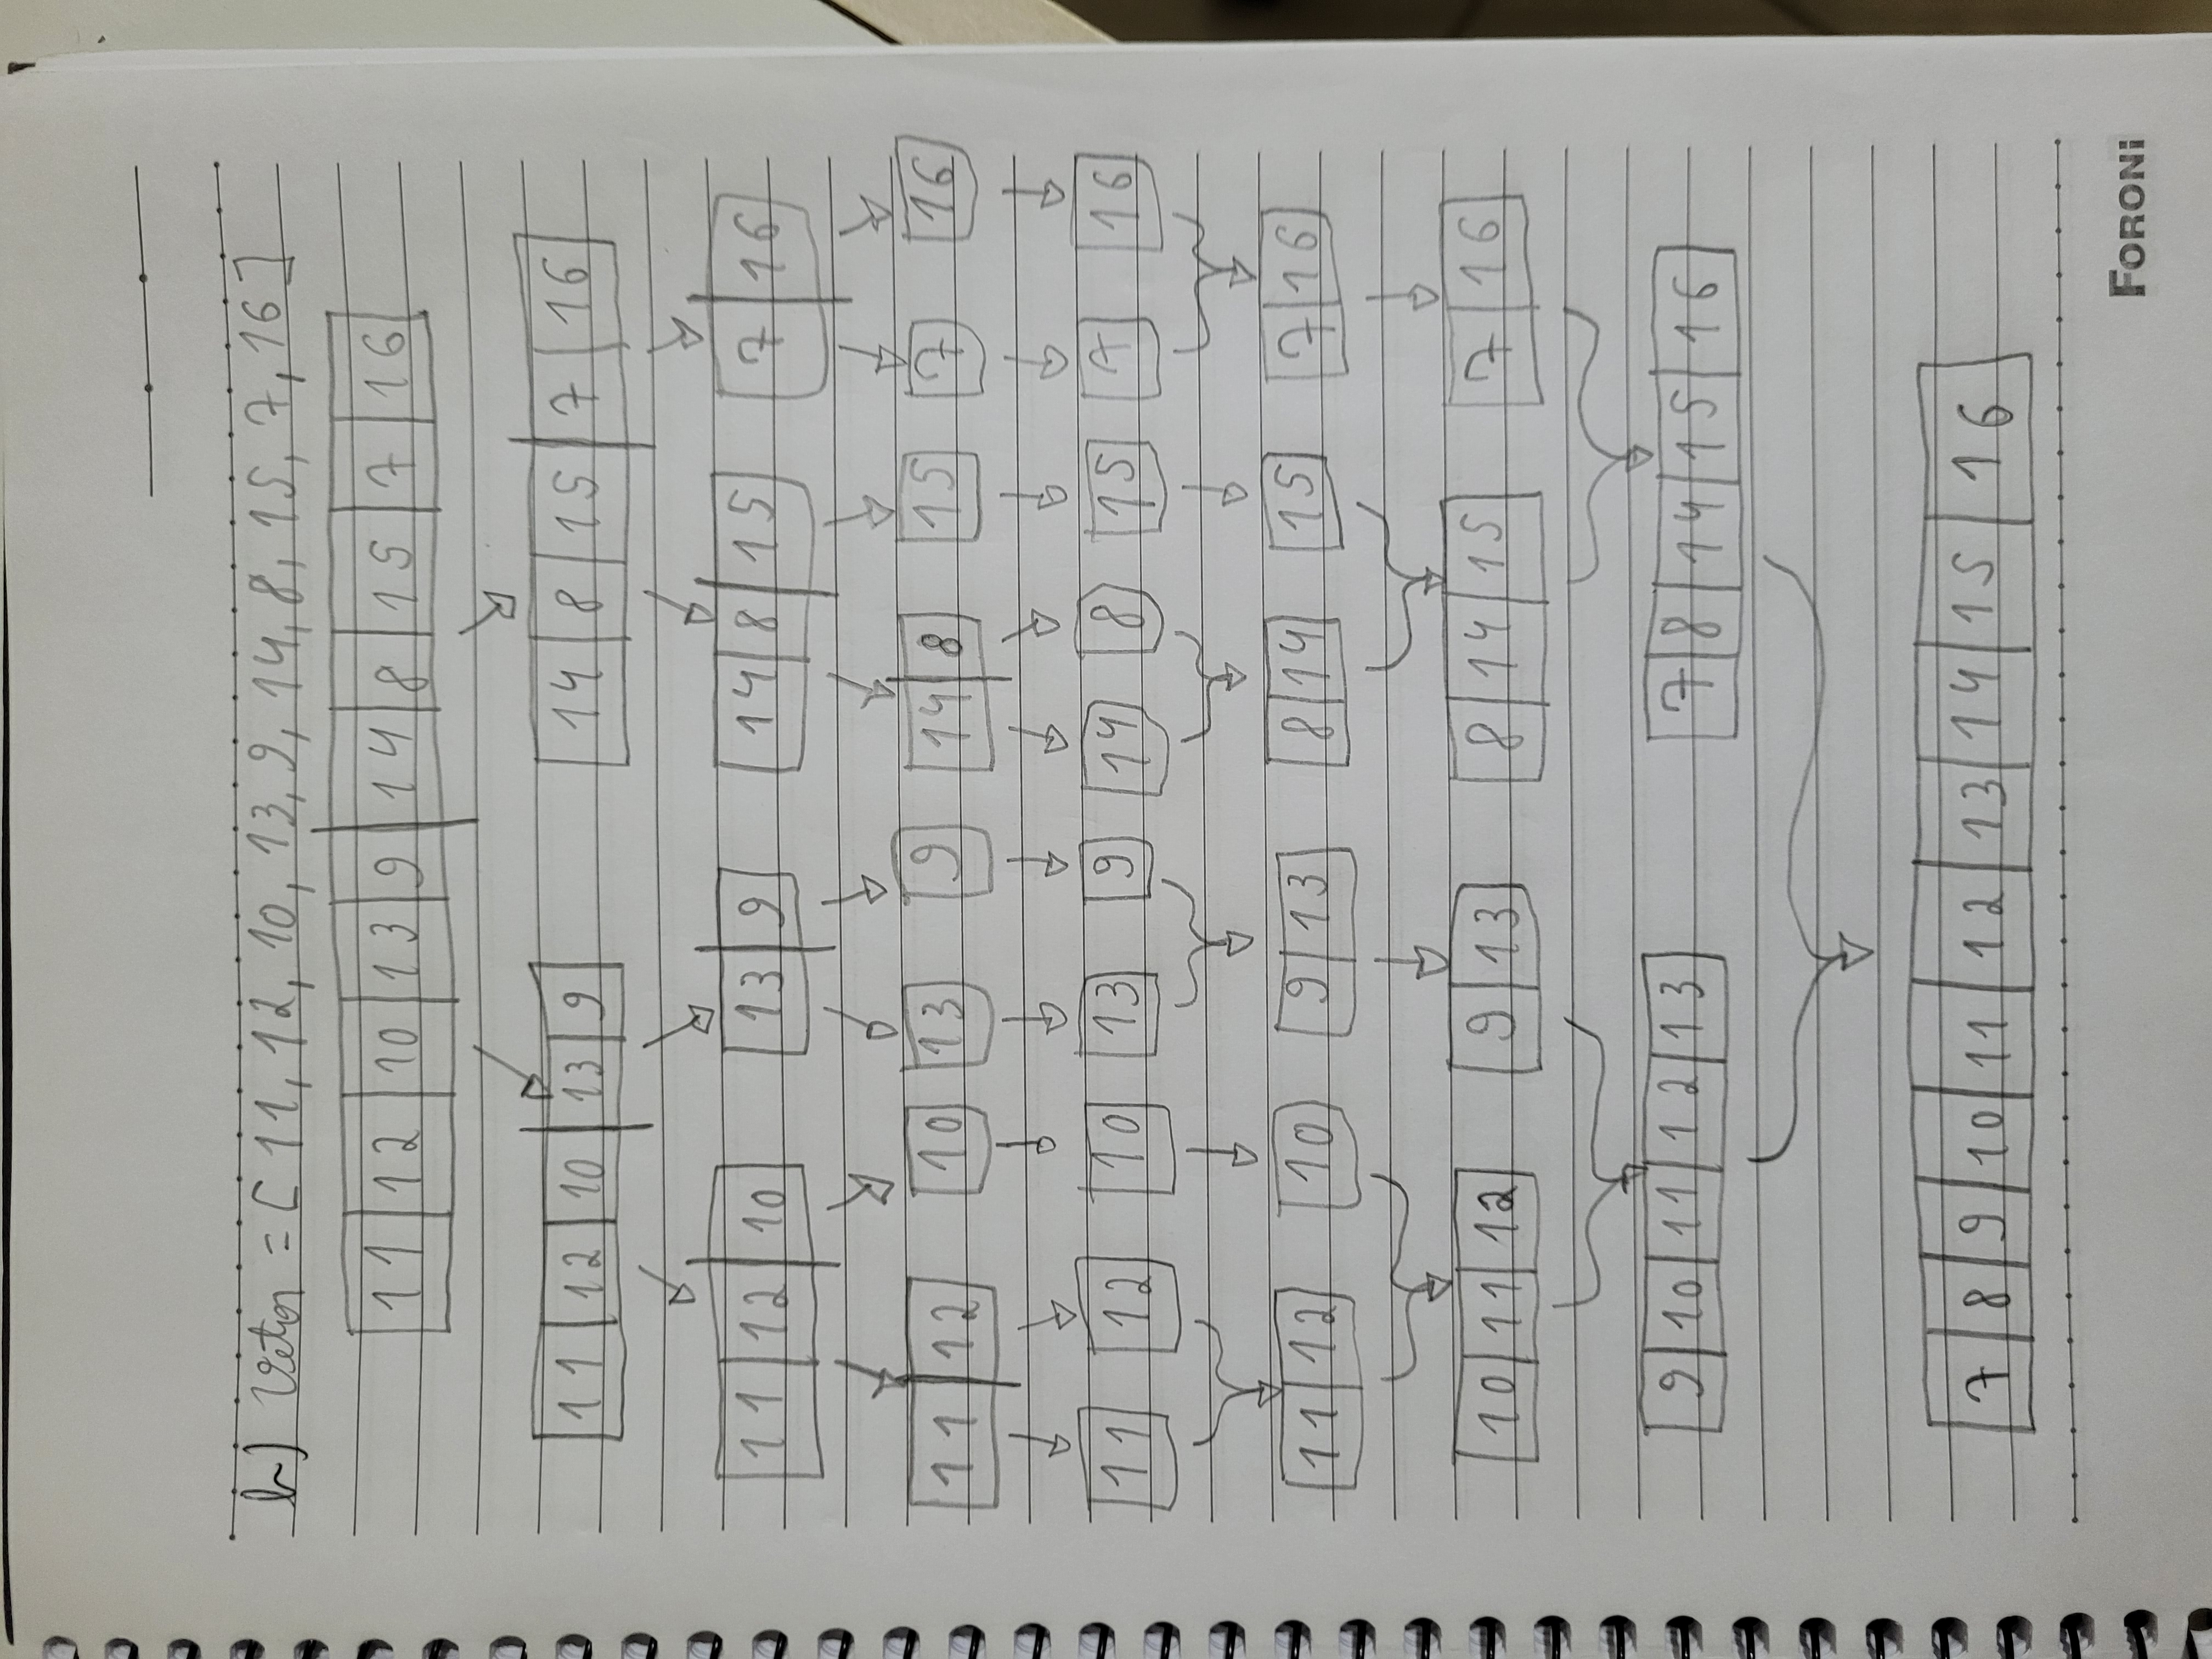 b) Vetor = [11, 12, 10, 13, 9, 14, 8, 15, 7, 16]
11 12 10 13 9 14 8 15 7 16
11 12 10 13 9 14 8 15 7 16
11 12 10 13 9 14 8 15 7 16
11 12 10 13 9 14 8 15 7 16
11 12 10 13 9 14 8 15 7 16
11 12 10 9 13 8 14 15 7 16
10 11 12 9 13 8 14 15 7 16
9 10 11 12 13 7 8 14 15 16
7 8 9 10 11 12 13 14 15 16
FORONI